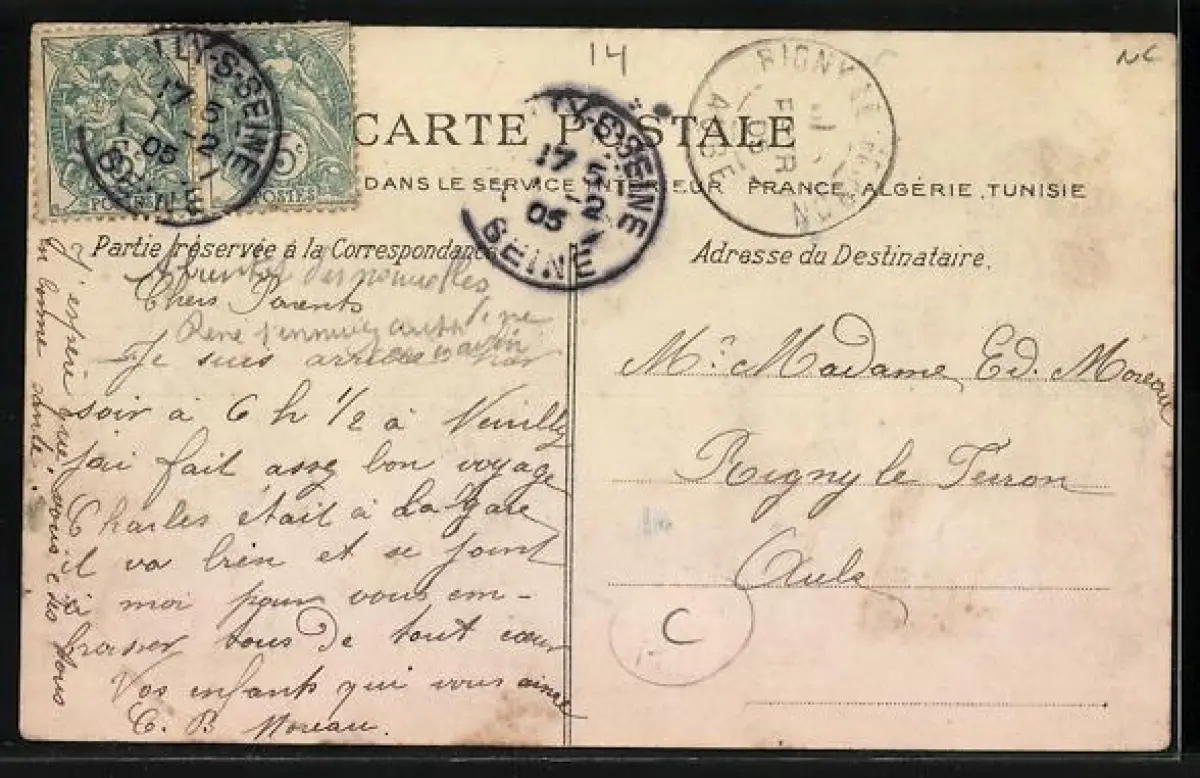 14
NC
CARTE POSTALE
DANS LE SERVICE INTERIEUR FRANCE, ALGÉRIE, TUNISIE
LY-S-SEINE
17 5
05 2
SEINE
POSTES
LY-S-SEINE
17 5
05 2
SEINE
RIGNY LE FERRON
AUBE
Partie réservée à la Correspondance
Adresse du Destinataire.
des nouvelles
Chers Parents
René s'ennuie
Je suis arrivée
soir à 6 h 1/2 à Neuilly
j'ai fait assez bon voyage
Charles était à la gare
il va bien et se joint
à moi pour vous em-
brasser tous de tout cœur
Vos enfants qui vous aime
C. B Moreau.
J'espère que vous etes tous
en bonne santé.
Mr Madame Ed. Moreau
Rigny le Ferron
Aube
C